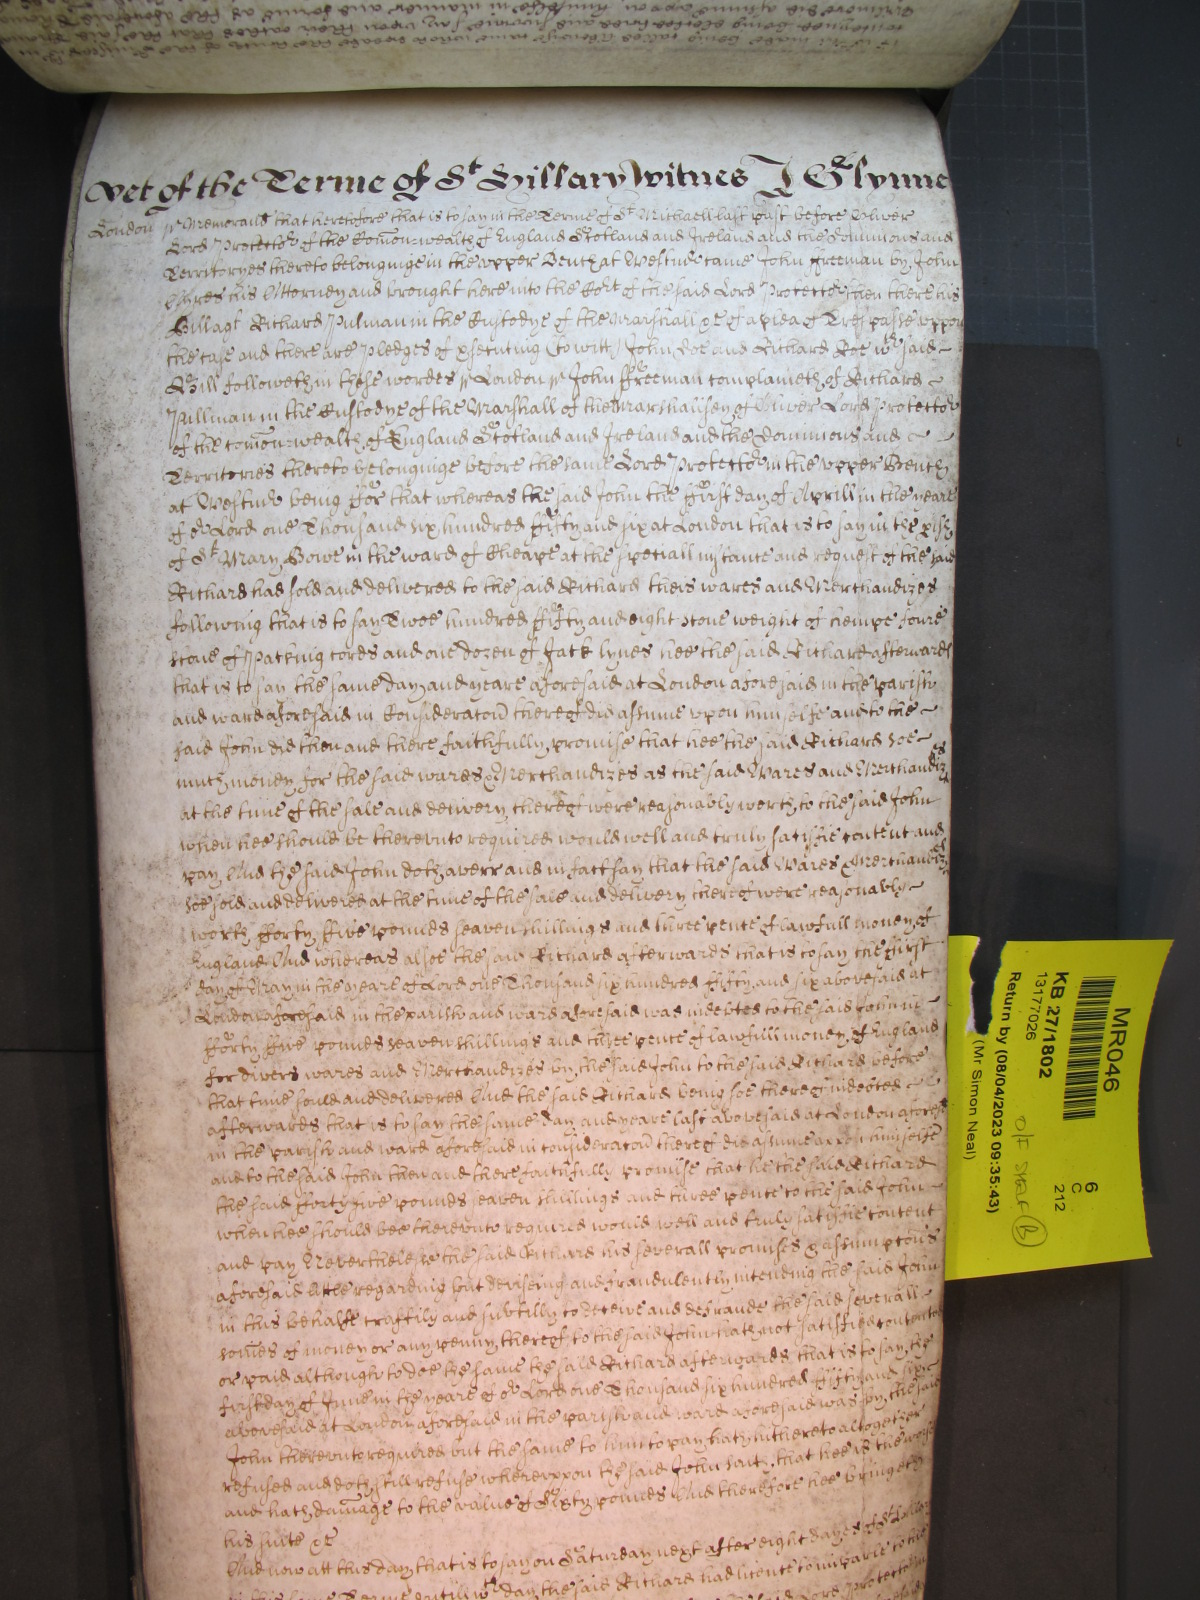 yet of the Terme of St Hillary Witnes J Glynne
London ss Memorand that heretofore that is to say in the Terme of St Michaell last past before Oliver
Lord Protector of the Comonwealth of England Scotland and Ireland and the Dominions and
Territoryes thereto belonginge in the upper Bench at Westmr came John Freeman by John
his Attorney and brought here into the Cort of the said Lord Protector then there his
Bill agt Richard Pulman in the Custodye of the Marshall &c of a plea of Trespasse uppon
the case and there are Pledges of prsecuting (to witt) John Doe and Richard Roe wch said
Bill followeth in these wordes ss London ss John Freeman complaineth of Richard
Pullman in the Custodye of the Marshall of the Marshalsey of Oliver Lord Protector
of the comon-wealth of England Scotland and Ireland and the Dominions and
Territories thereto belonginge before the same Lord Protector in the upper Bench
at Westmr being For that whereas the said John the first day of Aprill in the yeare
of or Lord one Thousand six hundred fifty and six at London that is to say in the prish
of St Mary Bowe in the ward of Cheape at the speciall instance and request of the said
Richard had sold and delivered to the said Richard theis wares and Merchandizes
following that is to say Twoe hundred fifty and eight stone weight of hempe foure
stone of Packing cords and one dozen of Jack lynes hee the said Richard afterwards
that is to say the same day and yeare aforesaid at London aforesaid in the parish
and ward aforesaid in Consideracon thereof did assume upon himselfe and to the
said John did then and there faithfully promise that hee the said Richard soe
much money for the said wares & Merchandizes as the said Wares and Merchandizes
at the time of the sale and delivery thereof were reasonably worth to the said John
when hee should be thereunto required would well and truly satisfie content and
pay And the said John doth averr and in fact say that the said Wares & Merchandizes
soe sold and delivered at the time of the sale and delivery thereof were reasonably
worth fforty ffive pounds seaven shillings and three pence of lawfull money of
England And whereas alsoe the said Richard afterwards that is to say the first
day of May in the yeare of Lord one Thousand six hundred fifty and six abovesaid at
London aforesaid in the parish and ward aforesaid was indebted to the said John in
fforty ffive pounds seaven shillings and three pence of lawfull money of England
for divers wares and Merchandizes by the said John to the said Richard before
that time sould and delivered And the said Richard being soe thereof indebted
afterwards that is to say the same day and yeare last abovesaid at London aforesd
in the parish and ward aforesaid in consideracon thereof did assume uppon himselfe
and to the said John then and there faithfully promise that he the said Richard
the said fforty five pounds seaven shillings and three pence to the said John
when hee should bee thereunto required would well and truly satisfie content
and pay Neverthelesse the said Richard his severall promises & assumptons
aforesaid little regarding but deviseing and fraudulently intending the said John
in this behalfe craftily and subtilly to deceive and defraude the said severall
somes of money or any penny thereof to the said John hath not satisfied contented
or paid although to doe the same the said Richard afterwards that is to say the
first day of June in the yeare of or Lord one Thousand six hundred fifty and six
abovesaid at London aforesaid in the parish and ward aforesaid was by the said
John thereunto required but the same to him to pay hath hitherto altogether
refused and doth still refuse whereuppon the said John saith that hee is the worse
and hath damage to the value of Sixty pounds And therefore hee bringeth
his suite &c
And now att this day that is to say on Saturday next after eight dayes of St Hillary
in this same Terme untill wch day the said Richard had licence to imparle to the
MR046
KB 27/1802
13177026
Return by (08/04/2023 09:35:43)
(Mr Simon Neal)
6
C
212